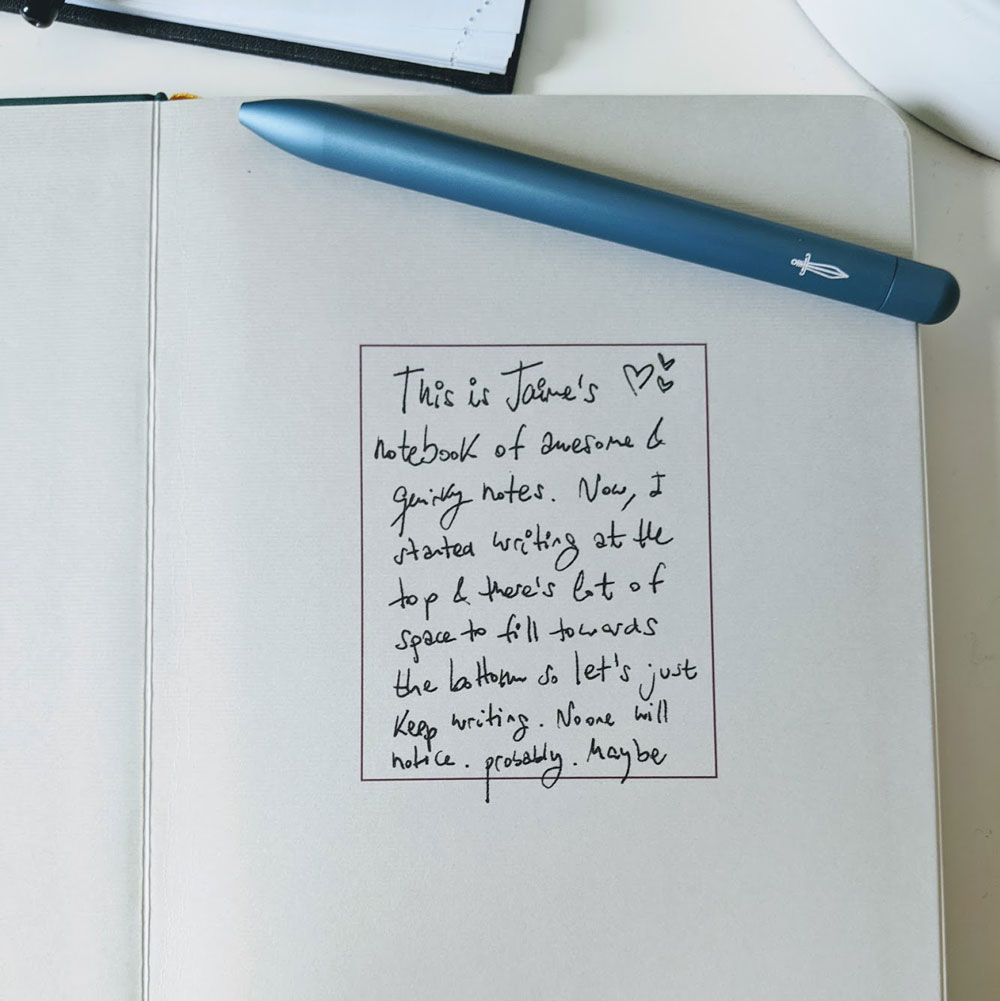 This is Jaime's
notebook of awesome &
quirky notes. Now, I
started writing at the
top & there's lot of
space to fill towards
the bottom so let's just
keep writing. Noone will
notice. probably. Maybe